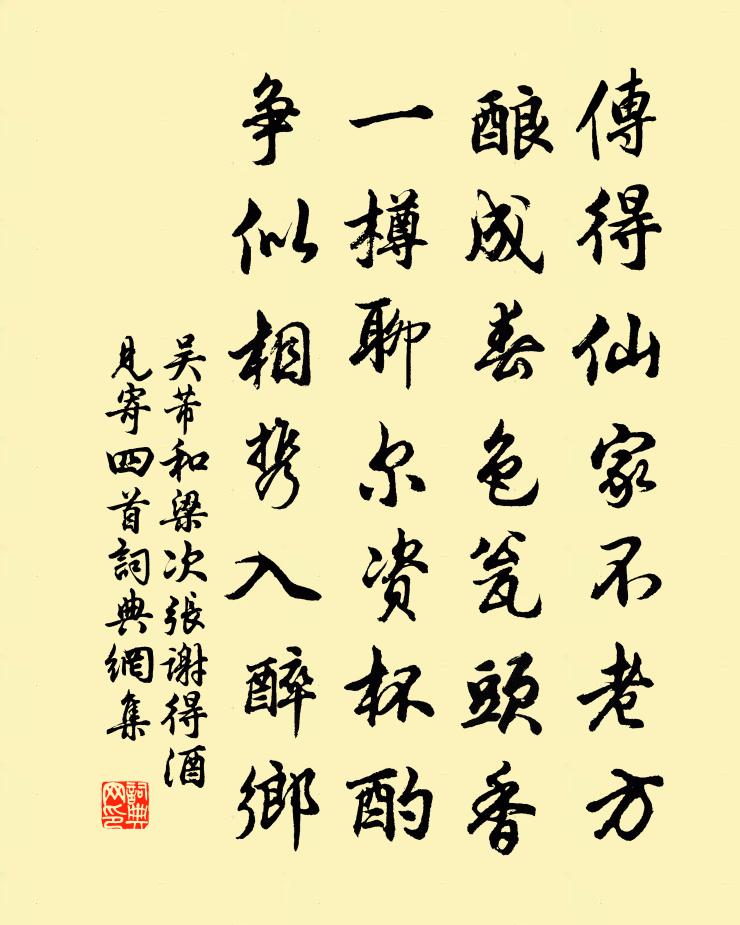 傳得仙家不老方
酿成春色瓮頭香
一樽聊尔资杯酌
争似相携入醉鄉
吴芾和梁次張谢得酒
見寄四首詞典網集
詞典
网印